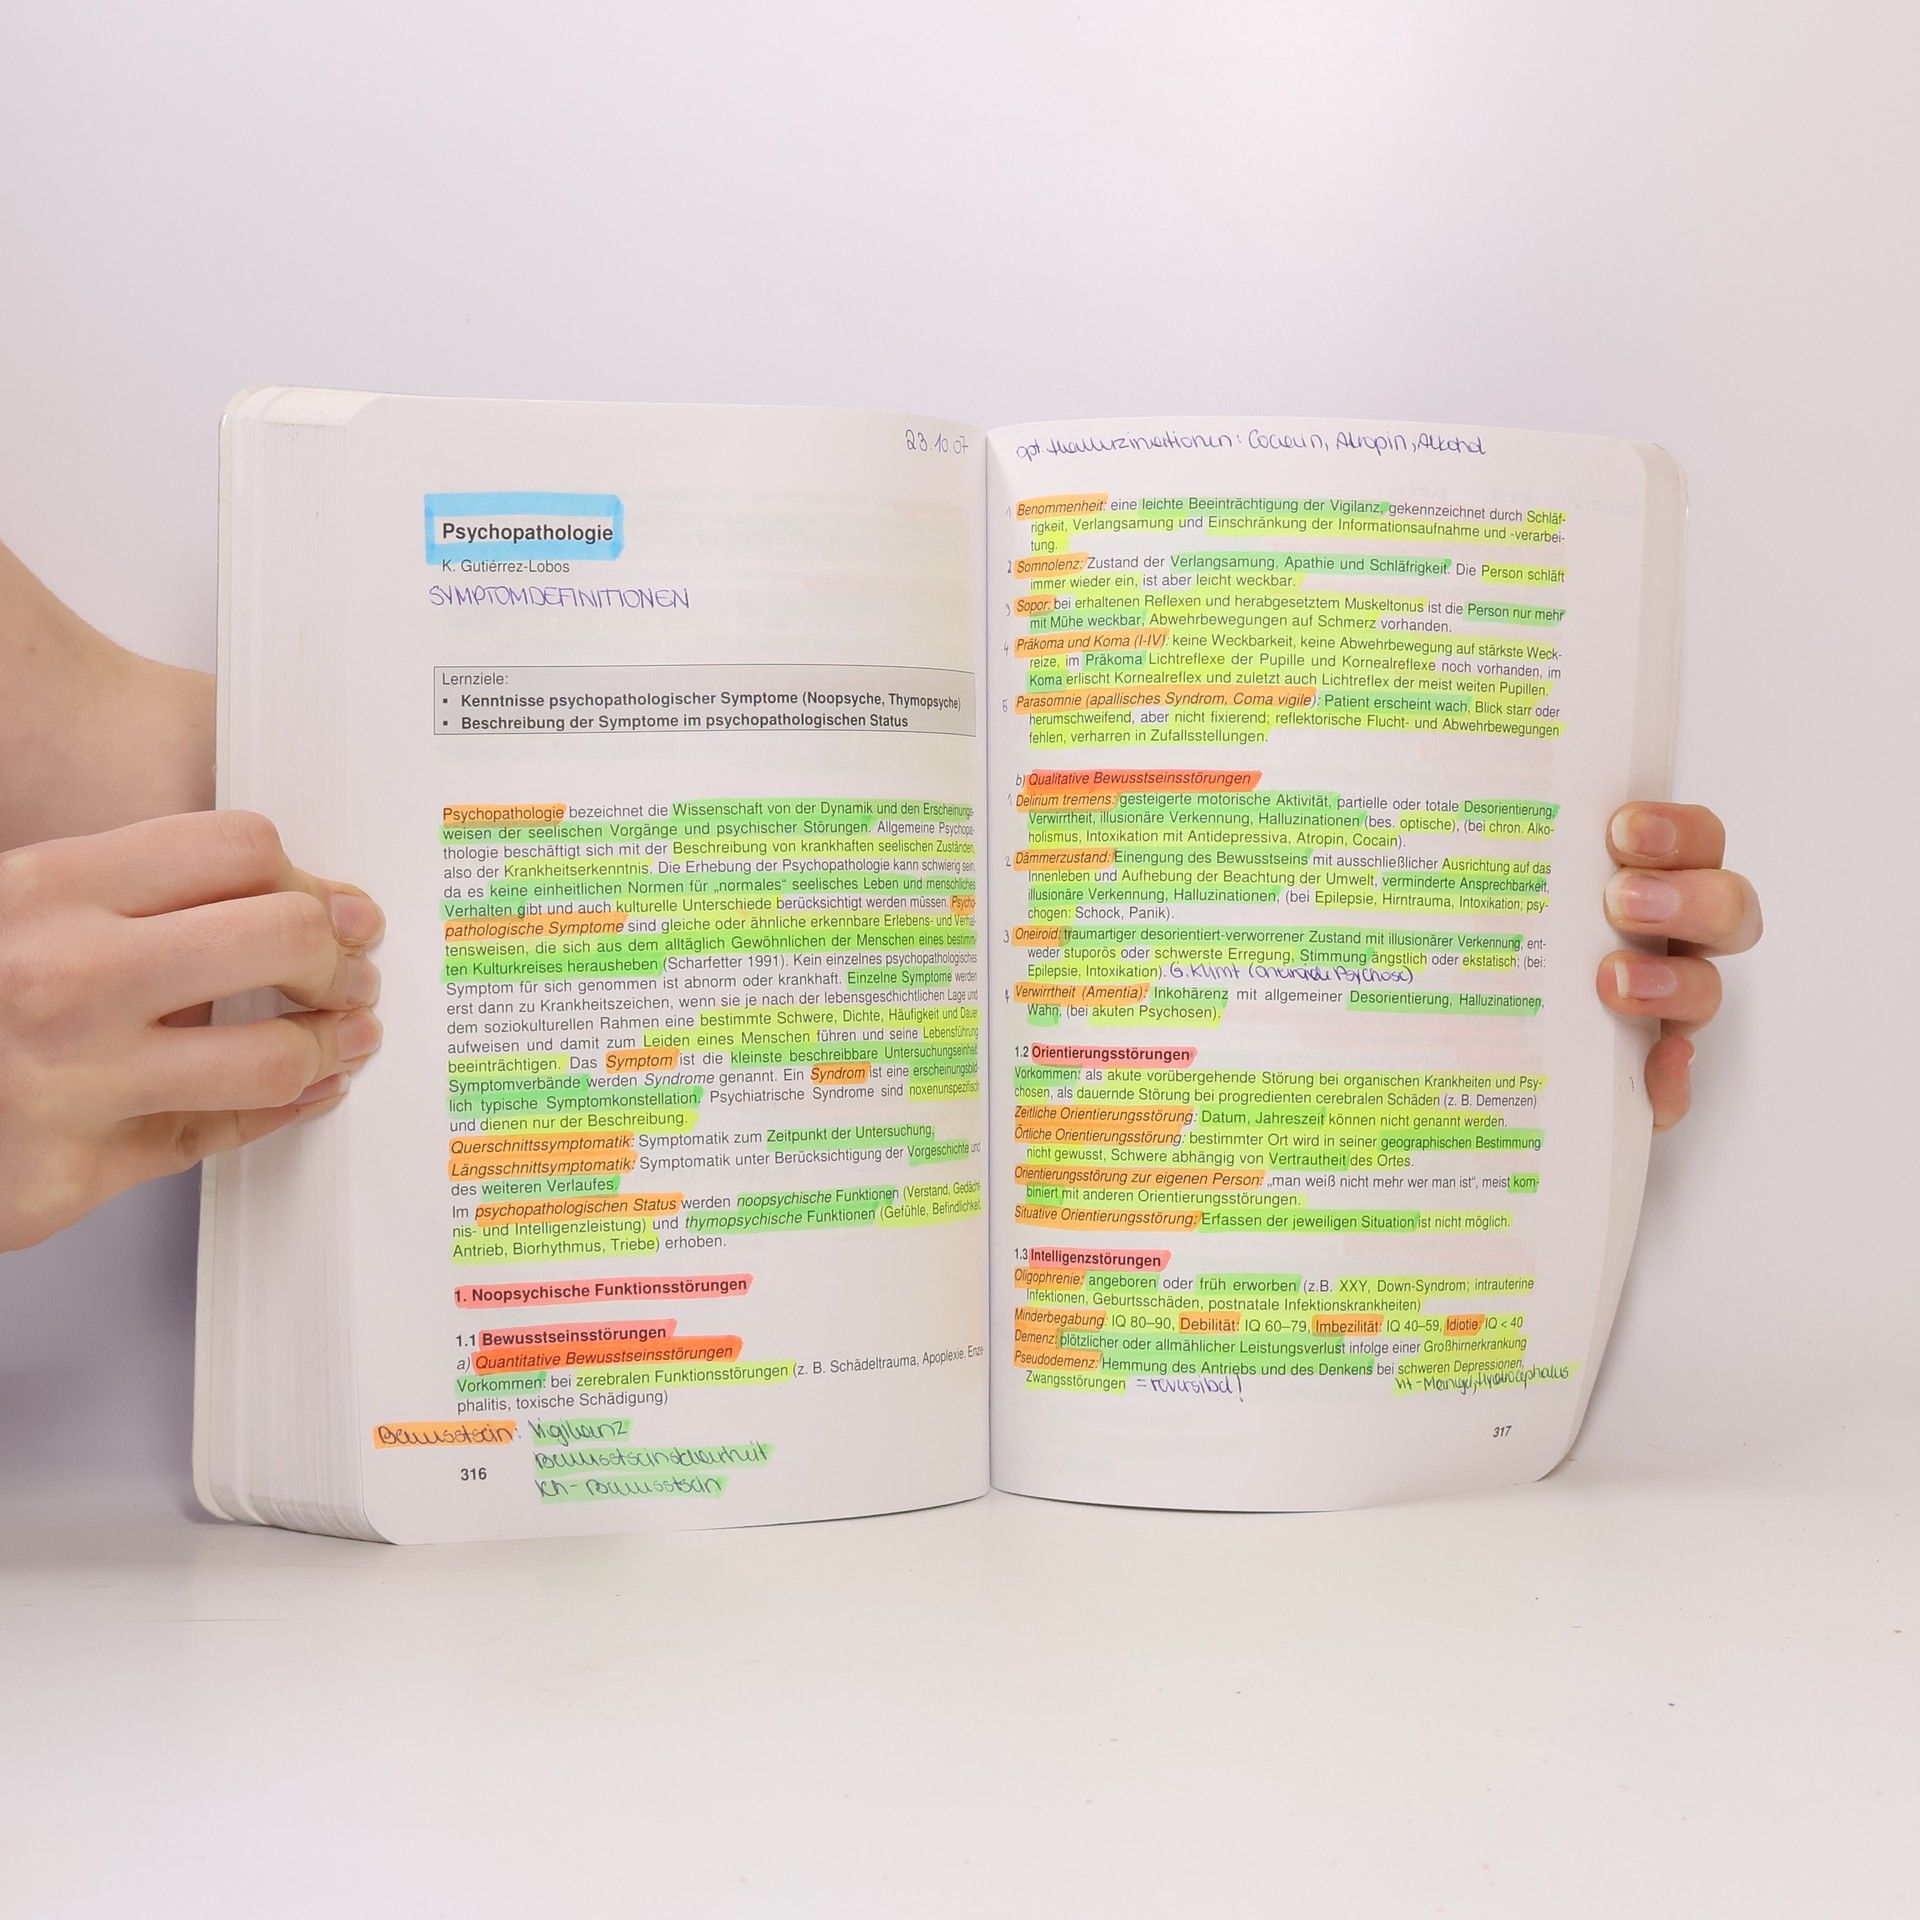 23.10.07
Psychopathologie
K. Gutiérrez-Lobos
SYMPTOMDEFINITIONEN
Lernziele:
▪ Kenntnisse psychopathologischer Symptome (Noopsyche, Thymopsyche)
▪ Beschreibung der Symptome im psychopathologischen Status
Psychopathologie bezeichnet die Wissenschaft von der Dynamik und den Erscheinungs-
weisen der seelischen Vorgänge und psychischer Störungen. Allgemeine Psychopa-
thologie beschäftigt sich mit der Beschreibung von krankhaften seelischen Zuständen,
also der Krankheitserkenntnis. Die Erhebung der Psychopathologie kann schwierig sein,
da es keine einheitlichen Normen für „normales“ seelisches Leben und menschliches
Verhalten gibt und auch kulturelle Unterschiede berücksichtigt werden müssen. Psycho-
pathologische Symptome sind gleiche oder ähnliche erkennbare Erlebens- und Verhal-
tensweisen, die sich aus dem alltäglich Gewöhnlichen der Menschen eines bestimm-
ten Kulturkreises herausheben (Scharfetter 1991). Kein einzelnes psychopathologisches
Symptom für sich genommen ist abnorm oder krankhaft. Einzelne Symptome werden
erst dann zu Krankheitszeichen, wenn sie je nach der lebensgeschichtlichen Lage und
dem soziokulturellen Rahmen eine bestimmte Schwere, Dichte, Häufigkeit und Dauer
aufweisen und damit zum Leiden eines Menschen führen und seine Lebensführung
beeinträchtigen. Das Symptom ist die kleinste beschreibbare Untersuchungseinheit.
Symptomverbände werden Syndrome genannt. Ein Syndrom ist eine erscheinungsbild-
lich typische Symptomkonstellation. Psychiatrische Syndrome sind noxenunspezifisch
und dienen nur der Beschreibung.
Querschnittssymptomatik: Symptomatik zum Zeitpunkt der Untersuchung,
Längsschnittsymptomatik: Symptomatik unter Berücksichtigung der Vorgeschichte und
des weiteren Verlaufes.
Im psychopathologischen Status werden noopsychische Funktionen (Verstand, Gedächt-
nis- und Intelligenzleistung) und thymopsychische Funktionen (Gefühle, Befindlichkeit,
Antrieb, Biorhythmus, Triebe) erhoben.
1. Noopsychische Funktionsstörungen
1.1 Bewusstseinsstörungen
a) Quantitative Bewusstseinsstörungen
Vorkommen: bei zerebralen Funktionsstörungen (z. B. Schädeltrauma, Apoplexie, Enze-
phalitis, toxische Schädigung)
Bewusstsein: Vigilanz
Bewusstseinsklarheit
Ich-Bewusstsein
316
opt. Halluzinationen: Cocain, Atropin, Alkohol
1 Benommenheit: eine leichte Beeinträchtigung der Vigilanz, gekennzeichnet durch Schläf-
rigkeit, Verlangsamung und Einschränkung der Informationsaufnahme und -verarbei-
tung.
2 Somnolenz: Zustand der Verlangsamung, Apathie und Schläfrigkeit. Die Person schläft
immer wieder ein, ist aber leicht weckbar.
3 Sopor: bei erhaltenen Reflexen und herabgesetztem Muskeltonus ist die Person nur mehr
mit Mühe weckbar, Abwehrbewegungen auf Schmerz vorhanden.
4 Präkoma und Koma (I-IV): keine Weckbarkeit, keine Abwehrbewegung auf stärkste Weck-
reize, im Präkoma Lichtreflexe der Pupille und Kornealreflexe noch vorhanden, im
Koma erlischt Kornealreflex und zuletzt auch Lichtreflex der meist weiten Pupillen.
5 Parasomnie (apallisches Syndrom, Coma vigile): Patient erscheint wach, Blick starr oder
herumschweifend, aber nicht fixierend; reflektorische Flucht- und Abwehrbewegungen
fehlen, verharren in Zufallsstellungen.
b) Qualitative Bewusstseinsstörungen
1 Delirium tremens: gesteigerte motorische Aktivität, partielle oder totale Desorientierung,
Verwirrtheit, illusionäre Verkennung, Halluzinationen (bes. optische), (bei chron. Alko-
holismus, Intoxikation mit Antidepressiva, Atropin, Cocain).
2 Dämmerzustand: Einengung des Bewusstseins mit ausschließlicher Ausrichtung auf das
Innenleben und Aufhebung der Beachtung der Umwelt, verminderte Ansprechbarkeit,
illusionäre Verkennung, Halluzinationen, (bei Epilepsie, Hirntrauma, Intoxikation; psy-
chogen: Schock, Panik).
3 Oneiroid: traumartiger desorientiert-verworrener Zustand mit illusionärer Verkennung, ent-
weder stuporös oder schwerste Erregung, Stimmung ängstlich oder ekstatisch; (bei:
Epilepsie, Intoxikation). G. Klimt (oneiroide Psychose)
4 Verwirrtheit (Amentia): Inkohärenz mit allgemeiner Desorientierung, Halluzinationen,
Wahn, (bei akuten Psychosen).
1.2 Orientierungsstörungen
Vorkommen: als akute vorübergehende Störung bei organischen Krankheiten und Psy-
chosen, als dauernde Störung bei progredienten cerebralen Schäden (z. B. Demenzen)
Zeitliche Orientierungsstörung: Datum, Jahreszeit können nicht genannt werden.
Örtliche Orientierungsstörung: bestimmter Ort wird in seiner geographischen Bestimmung
nicht gewusst, Schwere abhängig von Vertrautheit des Ortes.
Orientierungsstörung zur eigenen Person: „man weiß nicht mehr wer man ist“, meist kom-
biniert mit anderen Orientierungsstörungen.
Situative Orientierungsstörung: Erfassen der jeweiligen Situation ist nicht möglich.
1.3 Intelligenzstörungen
Oligophrenie: angeboren oder früh erworben (z.B. XXY, Down-Syndrom; intrauterine
Infektionen, Geburtsschäden, postnatale Infektionskrankheiten)
Minderbegabung: IQ 80–90, Debilität: IQ 60–79, Imbezilität: IQ 40–59, Idiotie: IQ < 40
Demenz: plötzlicher oder allmählicher Leistungsverlust infolge einer Großhirnerkrankung
Pseudodemenz: Hemmung des Antriebs und des Denkens bei schweren Depressionen,
Zwangsstörungen = reversibel! Vit-Mangel, Hydrocephalus
317